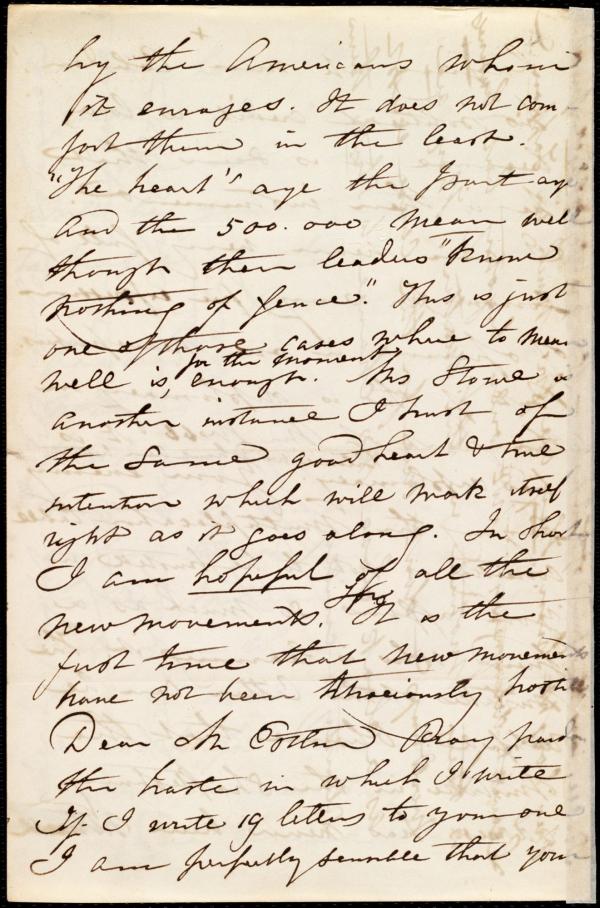 by the Americans whom
it enrages. It does not com
fort them in the least.
"The heart's aye the part ay
And the 500.000 mean wel
though their leaders "know
nothing of fence." This is just
one of those cases where to mean
for the moment
well is, enough. Mrs Stowe
another instance I trust of
the same good heart & true
intention which will work itself
right as it goes along. In short
I am hopeful of all the
new movements. For It is the
first time that new movements
have not been atrociously hostile
Dear Mr Estlin Pray pard
the haste in which I write
If I write 19 letters to your one
I am perfectly sensible that your